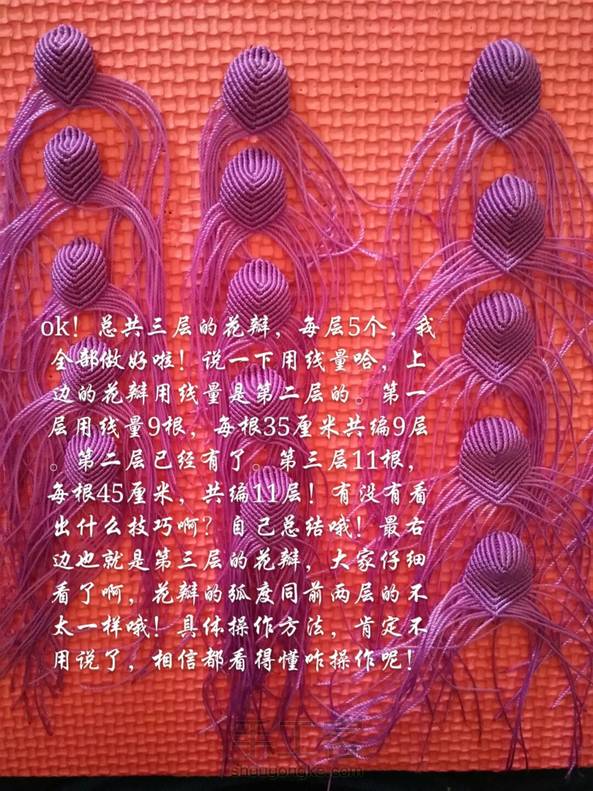 ok！总共三层的花瓣，每层5个，我
全部做好啦！说一下用线量哈，上
边的花瓣用线量是第二层的。第一
层用线量9根，每根35厘米共编9层
。第二层已经有了。第三层11根，
每根45厘米，共编11层！有没有看
出什么技巧啊？自己总结哦！最右
边也就是第三层的花瓣，大家仔细
看了啊，花瓣的弧度同前两层的不
太一样哦！具体操作方法，肯定不
用说了，相信都看得懂咋操作呢！
shougongke.com